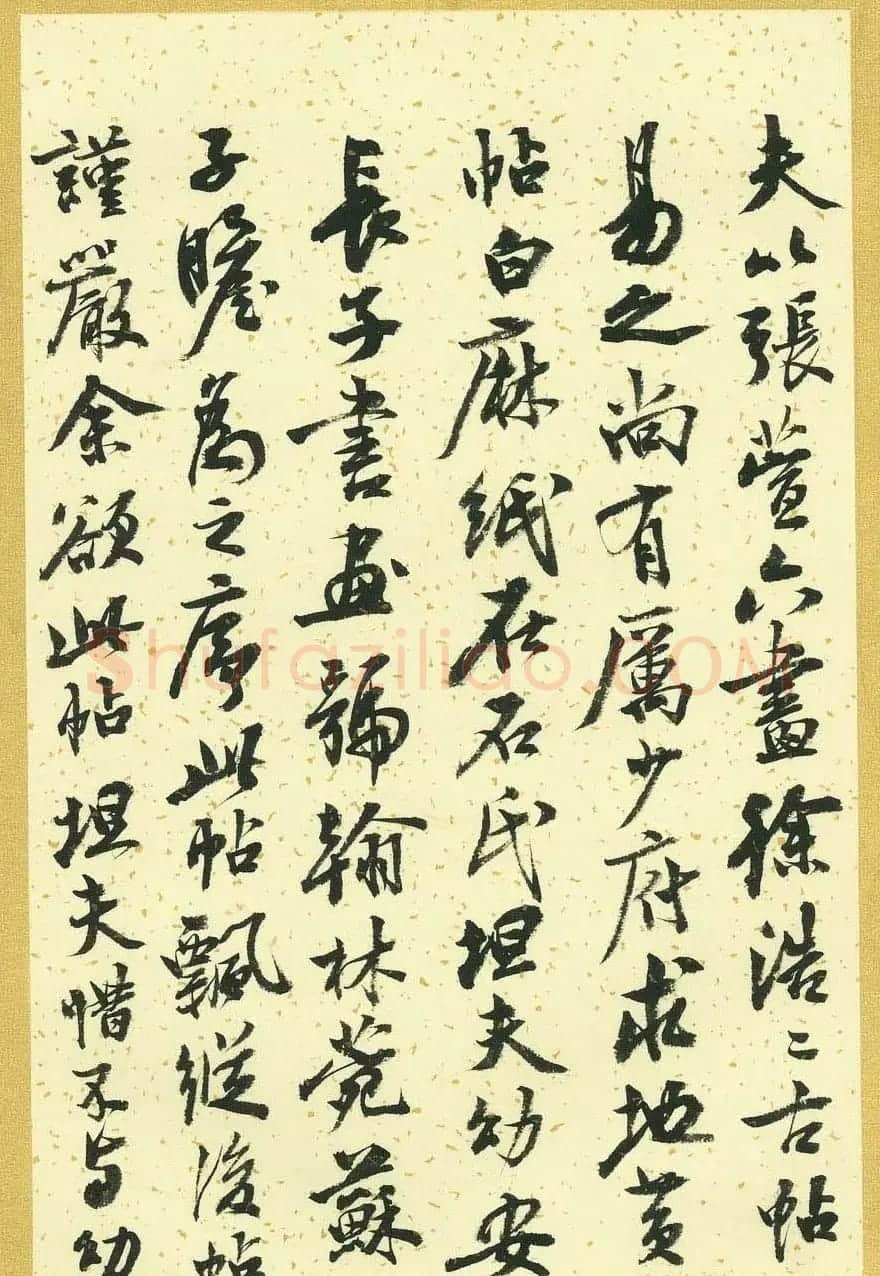 夫以張萱六畫徐浩二古帖
易之尚有厲少府求地黄
帖白麻紙在石氏坦夫幼安
長子書画號翰林菀蘇
子瞻為之序此帖飄縱後帖
謹嚴余欲此帖坦夫惜不与幼
Shufaziliao.COM